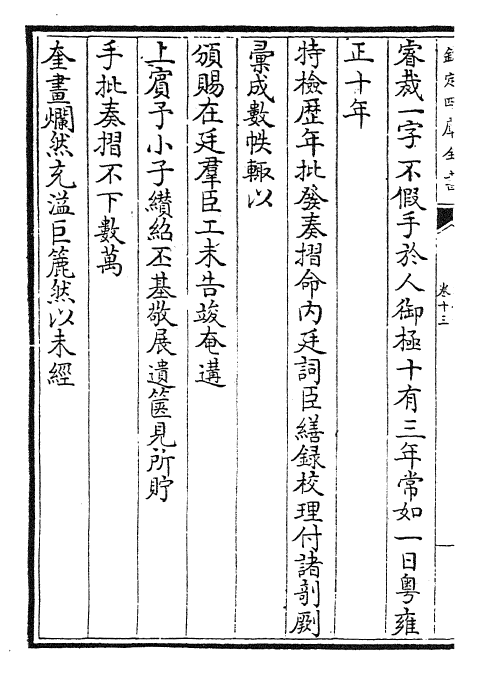 欽定四庫全書
卷十三
睿裁一字不假手於人御極十有三年常如一日粵雍
正十年
特檢歴年批發奏摺命內廷詞臣繕録校理付諸剞劂
彚成數帙輙以
頒賜在廷羣臣工未告竣奄遘
上賓予小子纘紹丕基敬展遺篋見所貯
手批奏摺不下數萬
奎畫爛然充溢巨簏然以未經